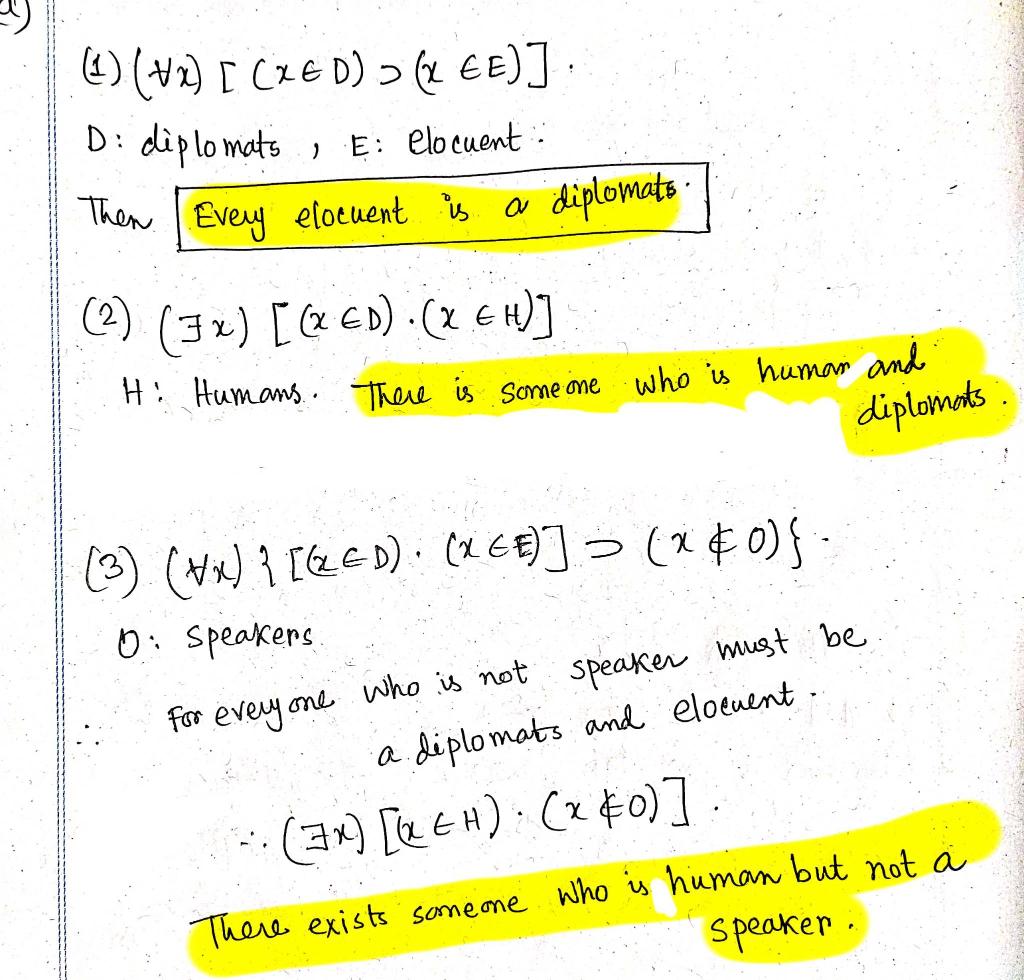 a)
(1) (∀x) [(x ∈ D) ⊃ (x ∈ E)].
D: diplomats, E: Elocuent.
Then Every elocuent is a diplomats.
(2) (∃x) [(x ∈ D) . (x ∈ H)]
H: Humans. There is someone who is human and
diplomats.
(3) (∀x) { [(x ∈ D) . (x ∈ E)] ⊃ (x ∉ O) }.
O: speakers
∴ For everyone who is not speaker must be
a diplomats and elocuent.
∴ (∃x) [(x ∈ H) . (x ∉ O)].
There exists someone who is human but not a
speaker.